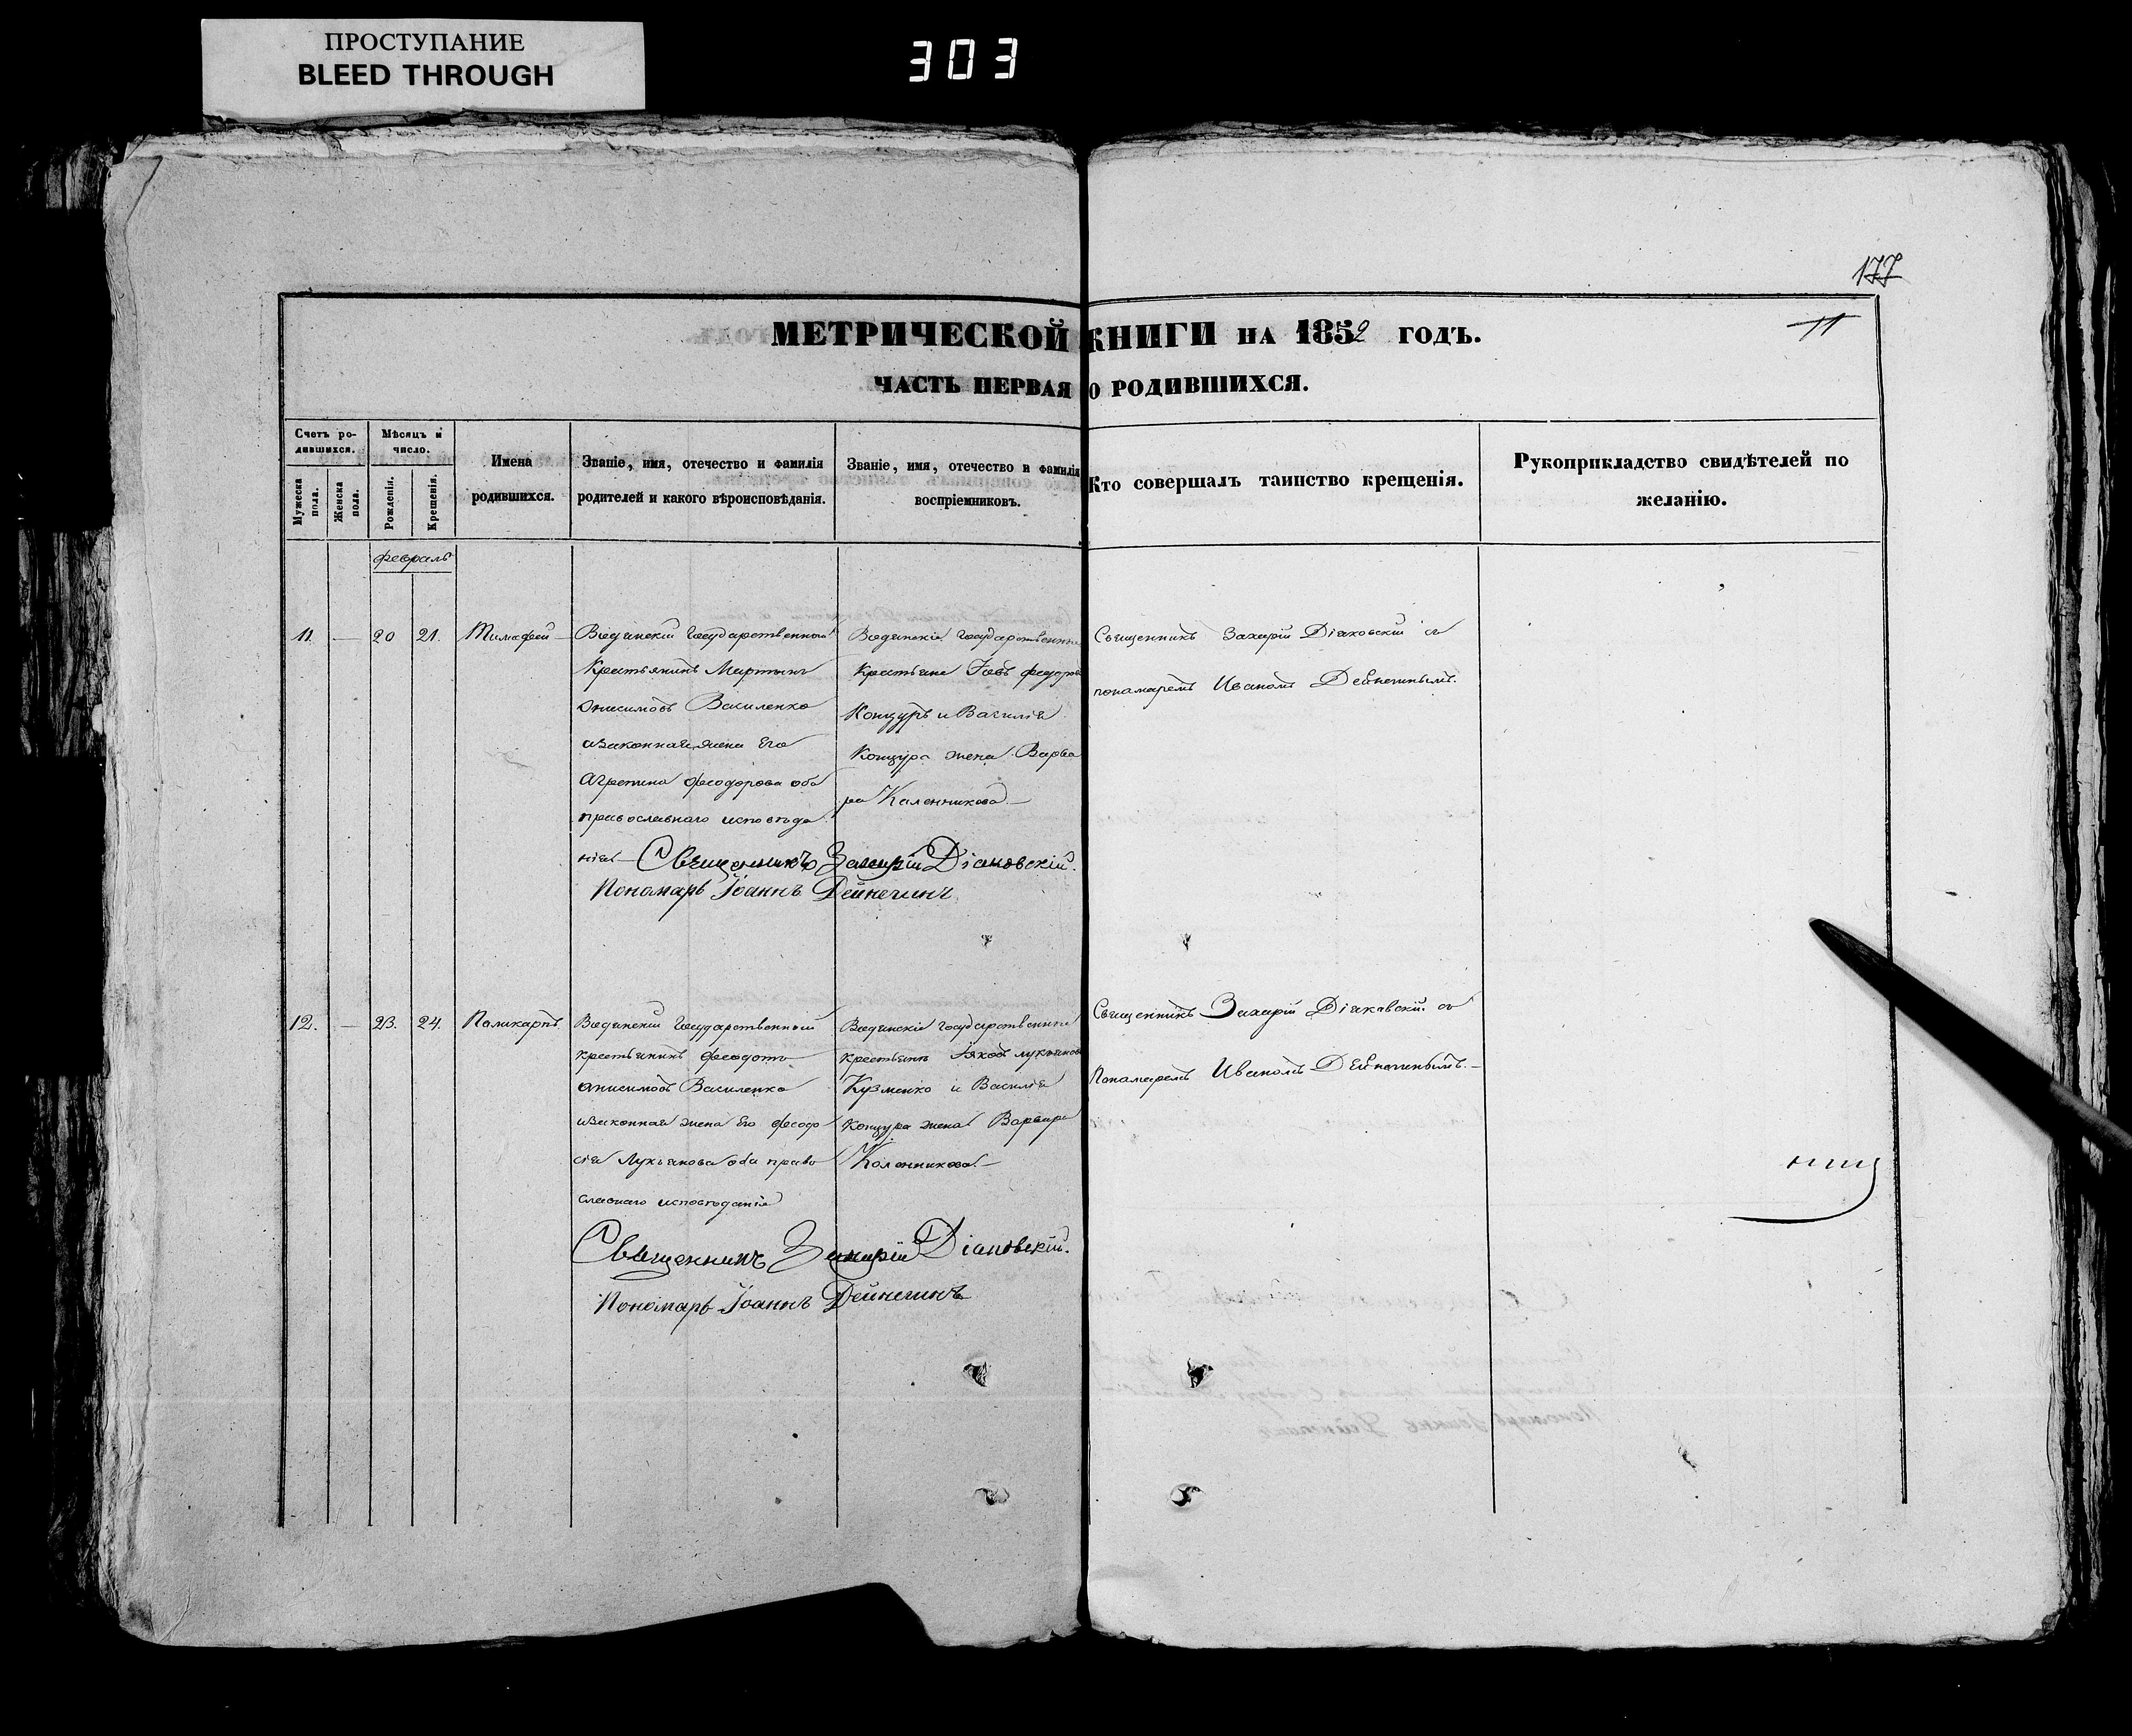 ПРОСТУПАНИЕ
BLEED THROUGH
303
177
11
МЕТРИЧЕСКОЙ КНИГИ НА 1852 ГОДЪ.
ЧАСТЬ ПЕРВАЯ О РОДИВШИХСЯ.
Счетъ ро-
дившихся.
Мужеска пола.
Женска пола.
Мѣсяцъ и
число.
Рожденія.
Крещенія.
Имена
родившихся.
Званіе, имя, отечество и фамилія
родителей и какого вѣроисповѣданія.
Званіе, имя, отечество и фамилія
воспріемниковъ.
Кто совершалъ таинство крещенія.
Рукоприкладство свидѣтелей по
желанію.
февраль
11. — 20 21. Тимофей
Государственной
Крестьянинъ Мартинъ
Онисимовъ Василенко
изаконная жена Его
Агрепина феодорова оба
православнаго исповѣда
нія —
Государственные
Крестьяне Іовъ федоров
Концуръ и Василія
Концура жена Варва
ра Каленникова —
Священникъ Захарій Діаковскій съ
пономаремъ Иваномъ Дейнечинымъ.
Священникъ Захарій Діаковскій.
Пономарь Іоаннъ Дейнечинъ
12. — 23. 24. Поликарпъ
Государственный
крестьянинъ феодотъ
анисимовъ Василенко
изаконная жена Его феодо
сія Лукьянова оба право
славнаго исповѣданія
Государственные
крестьяне Яковъ лукьянов
Кузменко и Василія
Концура жена Варвара
Коленникова —
Священникъ Захарій Діаковскій съ
Пономаремъ Иваномъ Дейнечинымъ. —
Священникъ Захарій Діаковскій.
Пономарь Іоаннъ Дейнечинъ